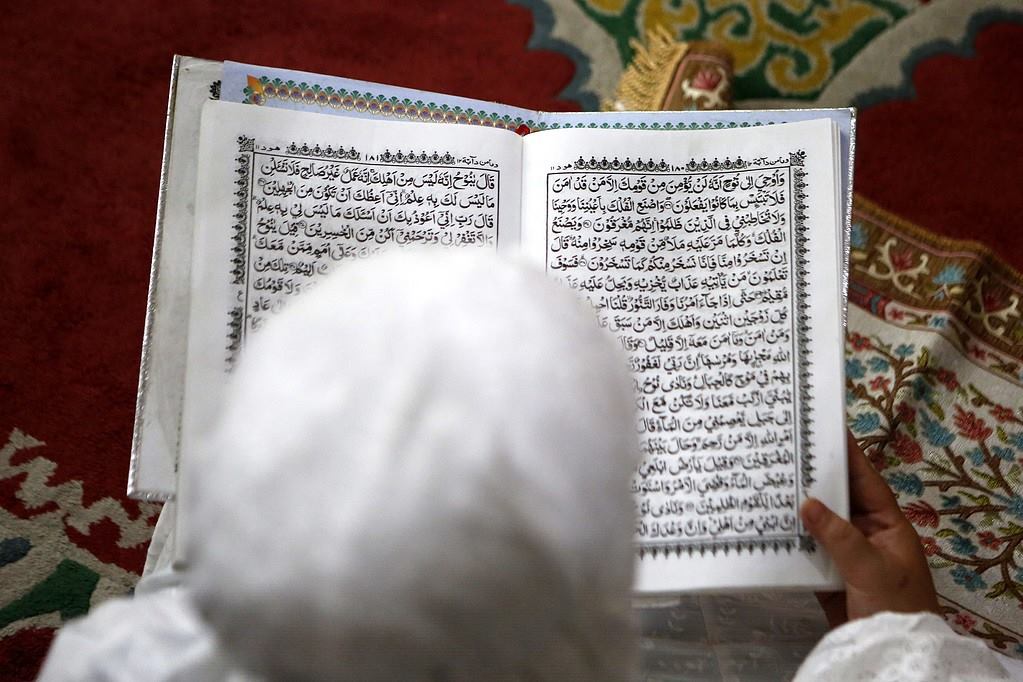 ومامن دآبة ١٢ ١٨٠ هود ١١
وَاُوْحِيَ اِلٰى نُوْحٍ اَنَّهٗ لَنْ يُّؤْمِنَ مِنْ قَوْمِكَ اِلَّا مَنْ قَدْ اٰمَنَ
فَلَا تَبْتَئِسْ بِمَا كَانُوْا يَفْعَلُوْنَ وَاصْنَعِ الْفُلْكَ بِاَعْيُنِنَا وَوَحْيِنَا
وَلَا تُخَاطِبْنِيْ فِي الَّذِيْنَ ظَلَمُوْا اِنَّهُمْ مُّغْرَقُوْنَ وَيَصْنَعُ
الْفُلْكَ وَكُلَّمَا مَرَّ عَلَيْهِ مَلَاٌ مِّنْ قَوْمِهٖ سَخِرُوْا مِنْهُ قَالَ
اِنْ تَسْخَرُوْا مِنَّا فَاِنَّا نَسْخَرُ مِنْكُمْ كَمَا تَسْخَرُوْنَ فَسَوْفَ
تَعْلَمُوْنَ مَنْ يَّاْتِيْهِ عَذَابٌ يُّخْزِيْهِ وَيَحِلُّ عَلَيْهِ
مُّقِيْمٌ حَتّٰى اِذَا جَآءَ اَمْرُنَا وَفَارَ التَّنُّوْرُ قُلْنَا
كُلٍّ زَوْجَيْنِ اثْنَيْنِ وَاَهْلَكَ اِلَّا مَنْ سَبَقَ
وَمَنْ اٰمَنَ وَمَآ اٰمَنَ مَعَهٗ اِلَّا قَلِيْلٌ
اللّٰهِ مَجْرٖىهَا وَمُرْسٰىهَا اِنَّ رَبِّيْ لَغَفُوْرٌ
بِهِمْ فِيْ مَوْجٍ كَالْجِبَالِ وَنَادٰى نُوْحُ
يّٰبُنَيَّ ارْكَبْ مَّعَنَا وَلَا تَكُنْ مَّعَ
اِلٰى جَبَلٍ يَّعْصِمُنِيْ مِنَ الْمَآءِ قَالَ
اَمْرِ اللّٰهِ اِلَّا مَنْ رَّحِمَ وَحَالَ بَيْنَهُمَا
الْمُغْرَقِيْنَ وَقِيْلَ يٰٓاَرْضُ ابْلَعِيْ
وَغِيْضَ الْمَآءُ وَقُضِيَ الْاَمْرُ وَاسْتَوَتْ
بُعْدًا لِّلْقَوْمِ الظّٰلِمِيْنَ وَنَادٰى نُوْحٌ
اِنَّ ابْنِيْ مِنْ اَهْلِيْ وَاِنَّ وَعْدَكَ
ومامن دآبة ١٢ ١٨١ هود ١١
قَالَ يٰنُوْحُ اِنَّهٗ لَيْسَ مِنْ اَهْلِكَ اِنَّهٗ عَمَلٌ غَيْرُ صَالِحٍ فَلَا تَسْـَٔلْنِ
مَا لَيْسَ لَكَ بِهٖ عِلْمٌ اِنِّيْٓ اَعِظُكَ اَنْ تَكُوْنَ مِنَ الْجٰهِلِيْنَ
قَالَ رَبِّ اِنِّيْٓ اَعُوْذُ بِكَ اَنْ اَسْـَٔلَكَ مَا لَيْسَ لِيْ بِهٖ عِلْمٌ
وَاِلَّا تَغْفِرْ لِيْ وَتَرْحَمْنِيْٓ اَكُنْ مِّنَ الْخٰسِرِيْنَ قِيْلَ يٰنُوْحُ
وَعَلٰٓى اُمَمٍ مِّمَّنْ مَّعَكَ